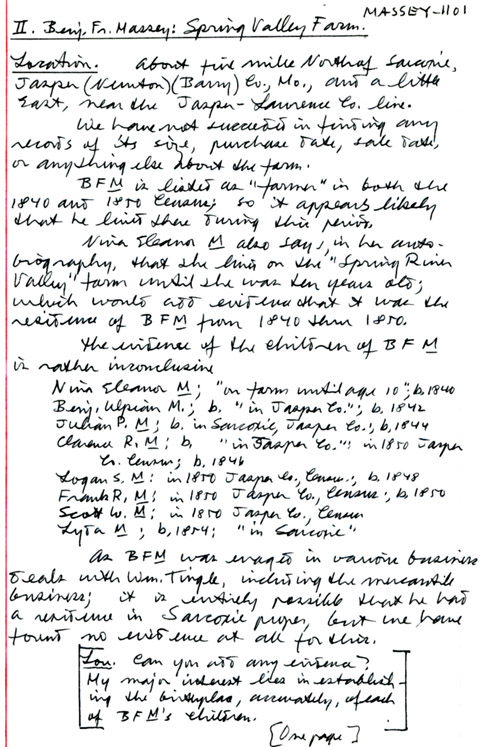 MASSEY-1101
II. Benj. Fr. Massey: Spring Valley Farm.
Location. About five miles North of Sarcoxie,
Jasper (Newton) (Barry) Co., Mo., and a little
East, near the Jasper-Lawrence Co. line.
We have not succeeded in finding any
records of its size, purchase date, sale date,
or anything else about the farm.
BFM is listed as "farmer" in both the
1840 and 1850 Census; so it appears likely
that he lived there during this period.
Nina Eleanor M also says, in her auto-
biography, that she lived on the "Spring River
Valley" farm until she was ten years old;
which would add evidence that it was the
residence of BFM from 1840 thru 1850.
The evidence of the children of BFM
is rather inconclusive
Nina Eleanor M; "on farm until age 10"; b. 1840
Benj. Ulpian M.; b. "in Jasper Co."; b. 1842
Julian P. M; b. in Sarcoxie, Jasper Co.; b. 1844
Clarence R. M; b. "in Jasper Co."; in 1850 Jasper
Co. Census; b. 1846
Logan S. M: in 1850 Jasper Co., Census.; b. 1848
Frank R. M: in 1850 Jasper Co., Census; b. 1850
Scott W. M: in 1850 Jasper Co., Census
Lyda M; b. 1854; "in Sarcoxie"
As BFM was engaged in various business
deals with Wm. Tingle, including the mercantile
business; it is entirely possible that he had
a residence in Sarcoxie proper, but we have
found no evidence at all for this.
Lou. Can you add any evidence?
My major interest lies in establish-
ing the birthplace, accurately, of each
of BFM's children.
[One page]